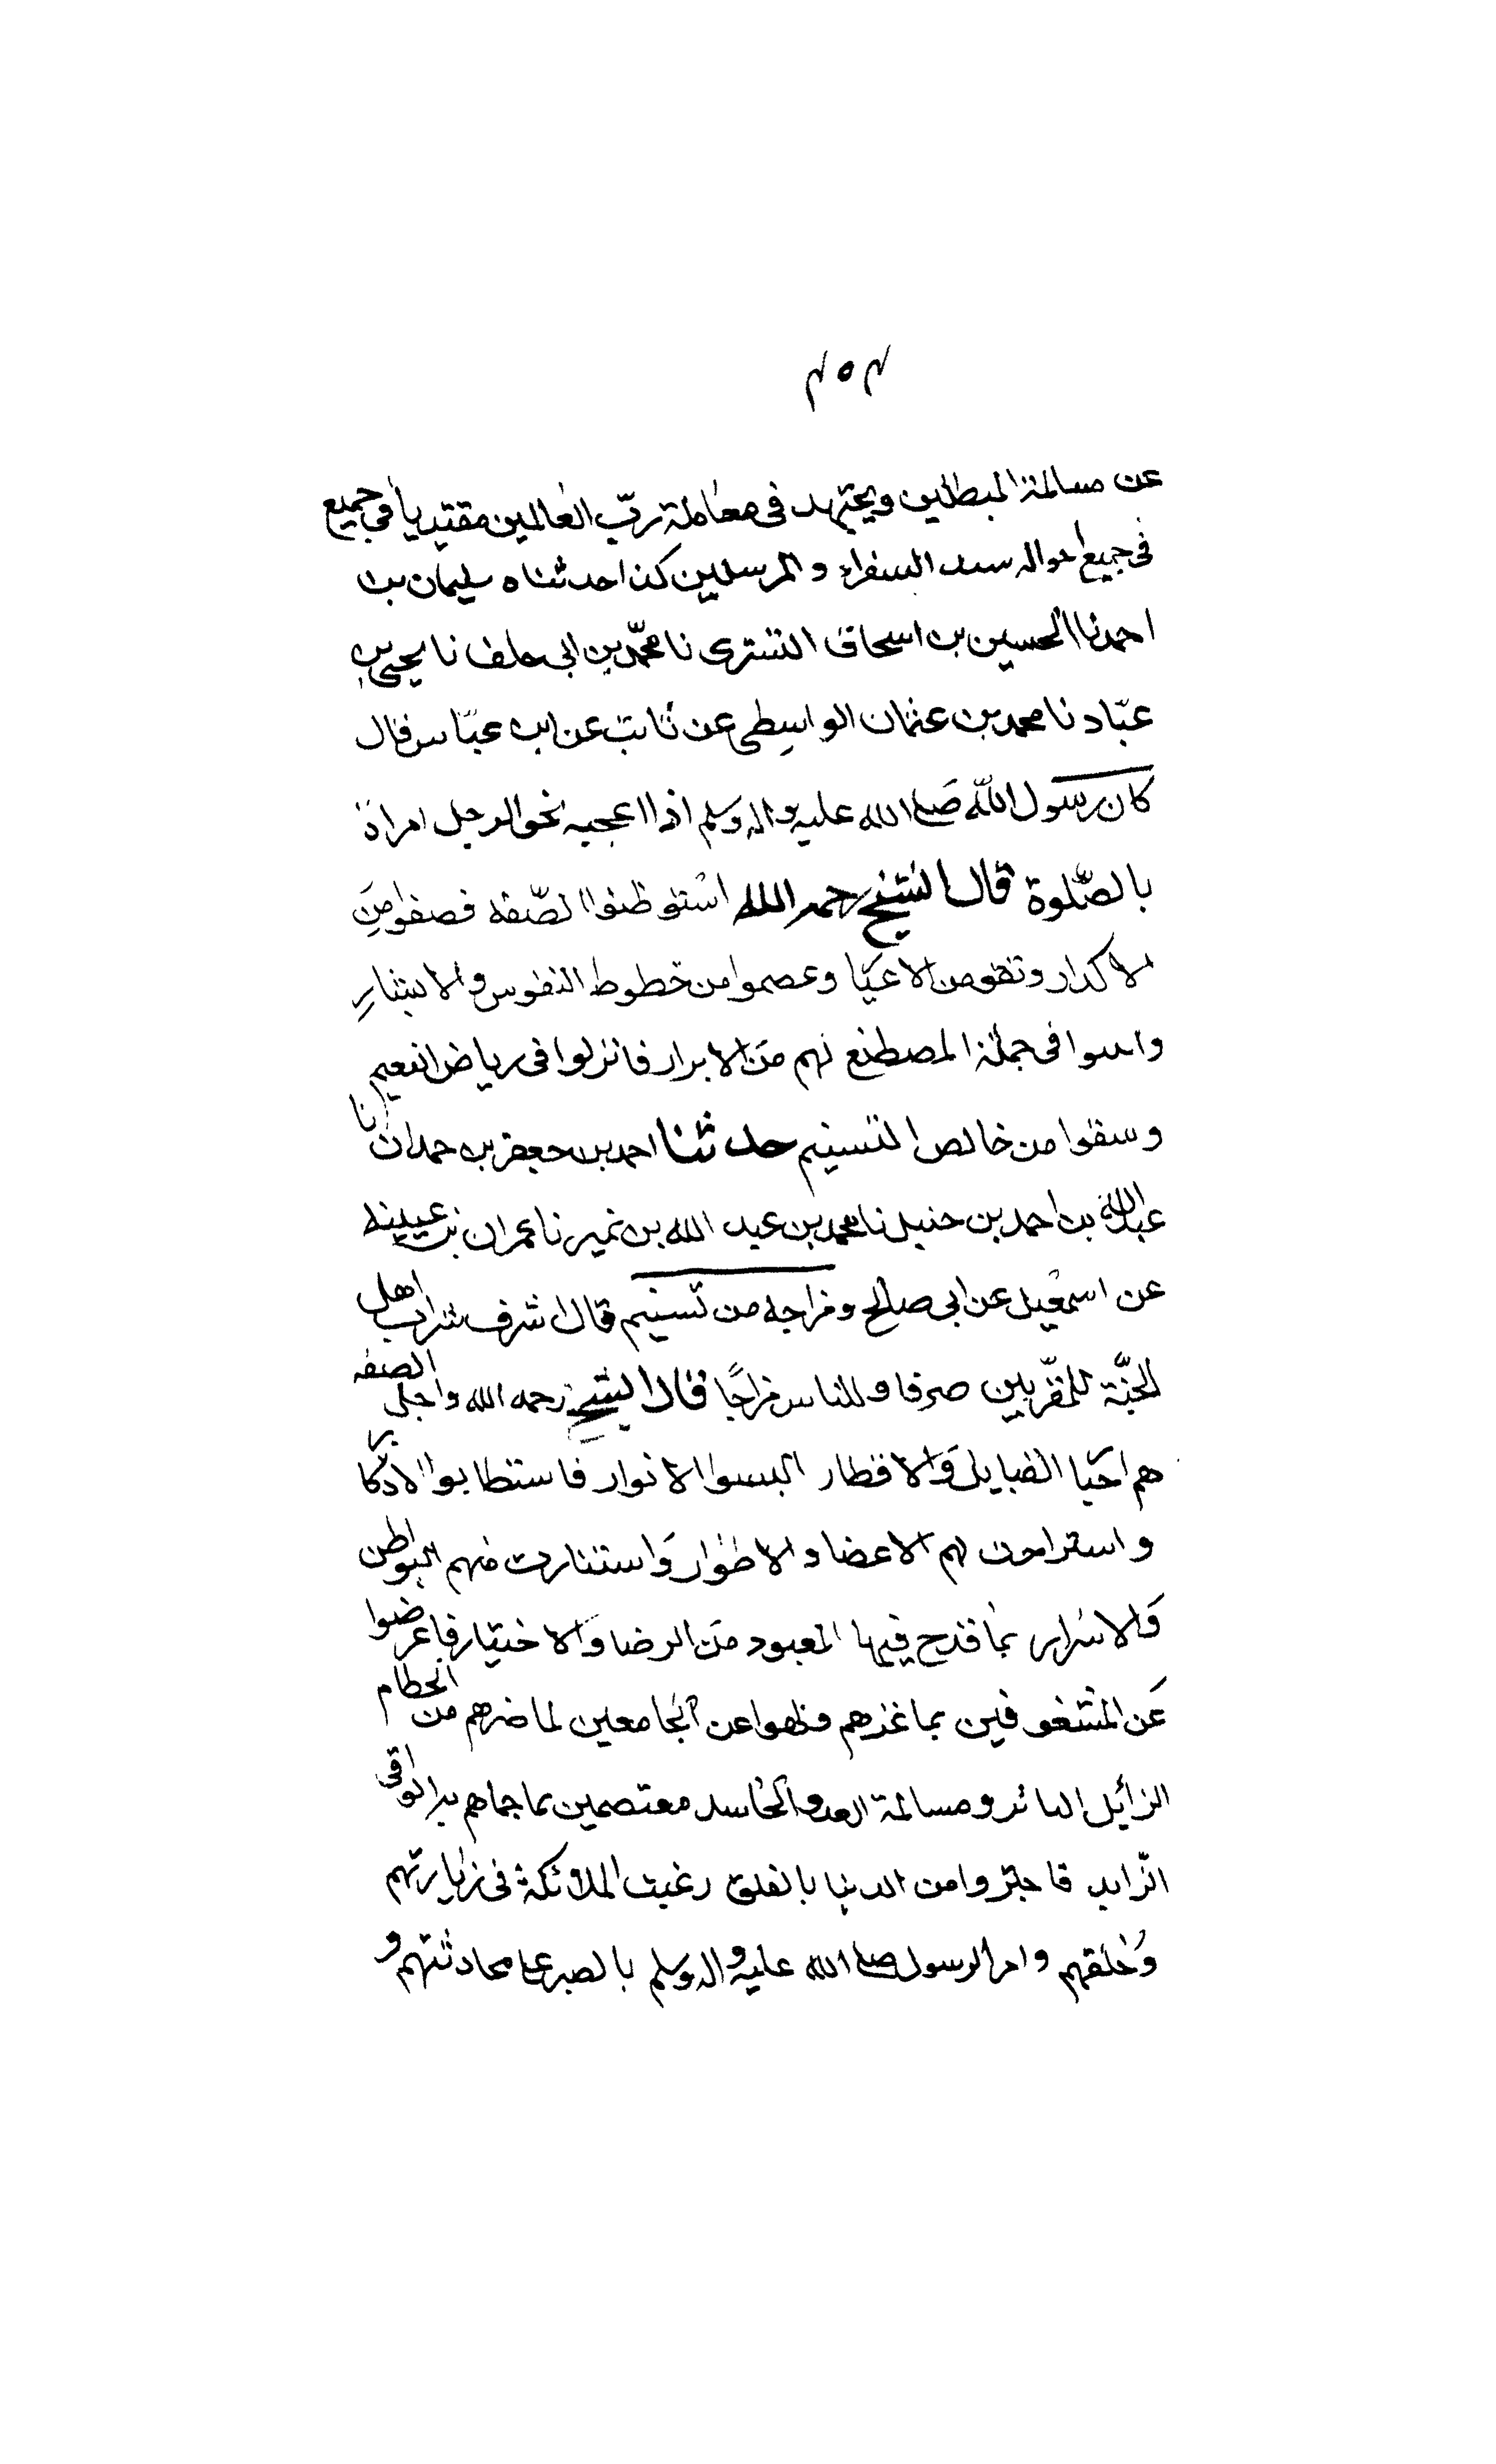 ٤٥٤
عن مسالمة المبطلين ويجتهد فى معاملة ربّ العالمين مقتديا فى جميع
فى جميع احواله سيد السفراء والمرسلين كذا حدثناه سليمان بن
احمد نا الحسين بن اسحاق التسترى نا محمّد بن ابى خلف نا يحيى بن
عبّاد نا محمد بن عثمان الواسطى عن ثابت عن ابن عبّاس قال
كان رسول اللّه صلى الله عليه واله وسلم اذا اعجبه نحو الرجل امراة
بالصّلوة قال الشيخ رحمه الله استوطنوا الصّفة فصفوا من
الاكدار ونقوا من الاغيا وعصموا من حظوط النفوس والابشار
واثبتوا فى جملة المصطنع لهم من الابرار فانزلوا فى رياض النعيم
وسقوا من خالص التسنيم حدثنا احمد بن جعفر بن حمدان نا
عبد الله بن احمد بن حنبل نا محمد بن عبد الله بن نمير نا عمران بن عيينه
عن اسمعيل عن ابى صالح ومزاجه من تسنيم قال اشرف شراب اهل
الجنّة للمقرّبين صرفا وللناس مزاجًا قال الشيخ رحمه الله واهل الصفه
هم احيا القبايل والاقطار البسوا الانوار فاستطابوا الاذكار
واستراحت لهم الاعضا والاطوار واستنارت منهم البواطن
والاسرار بما قدح فيها المعبود من الرضا والاختيار فاعرضوا
عن المشغوفين بما غرهم ولهوا عن الجامعين لما ضرهم من الحطام
الزائل البائد ومسالمة العدو الحاسد معتصمين بما حماهم به الواقى
الزايد فاجتزوا من الدنيا بالفلق رغبت الملائكة فى زيارتهم
وخلقهم وامر الرسول صلى الله عليه واله وسلم بالصبر على محادثتهم و